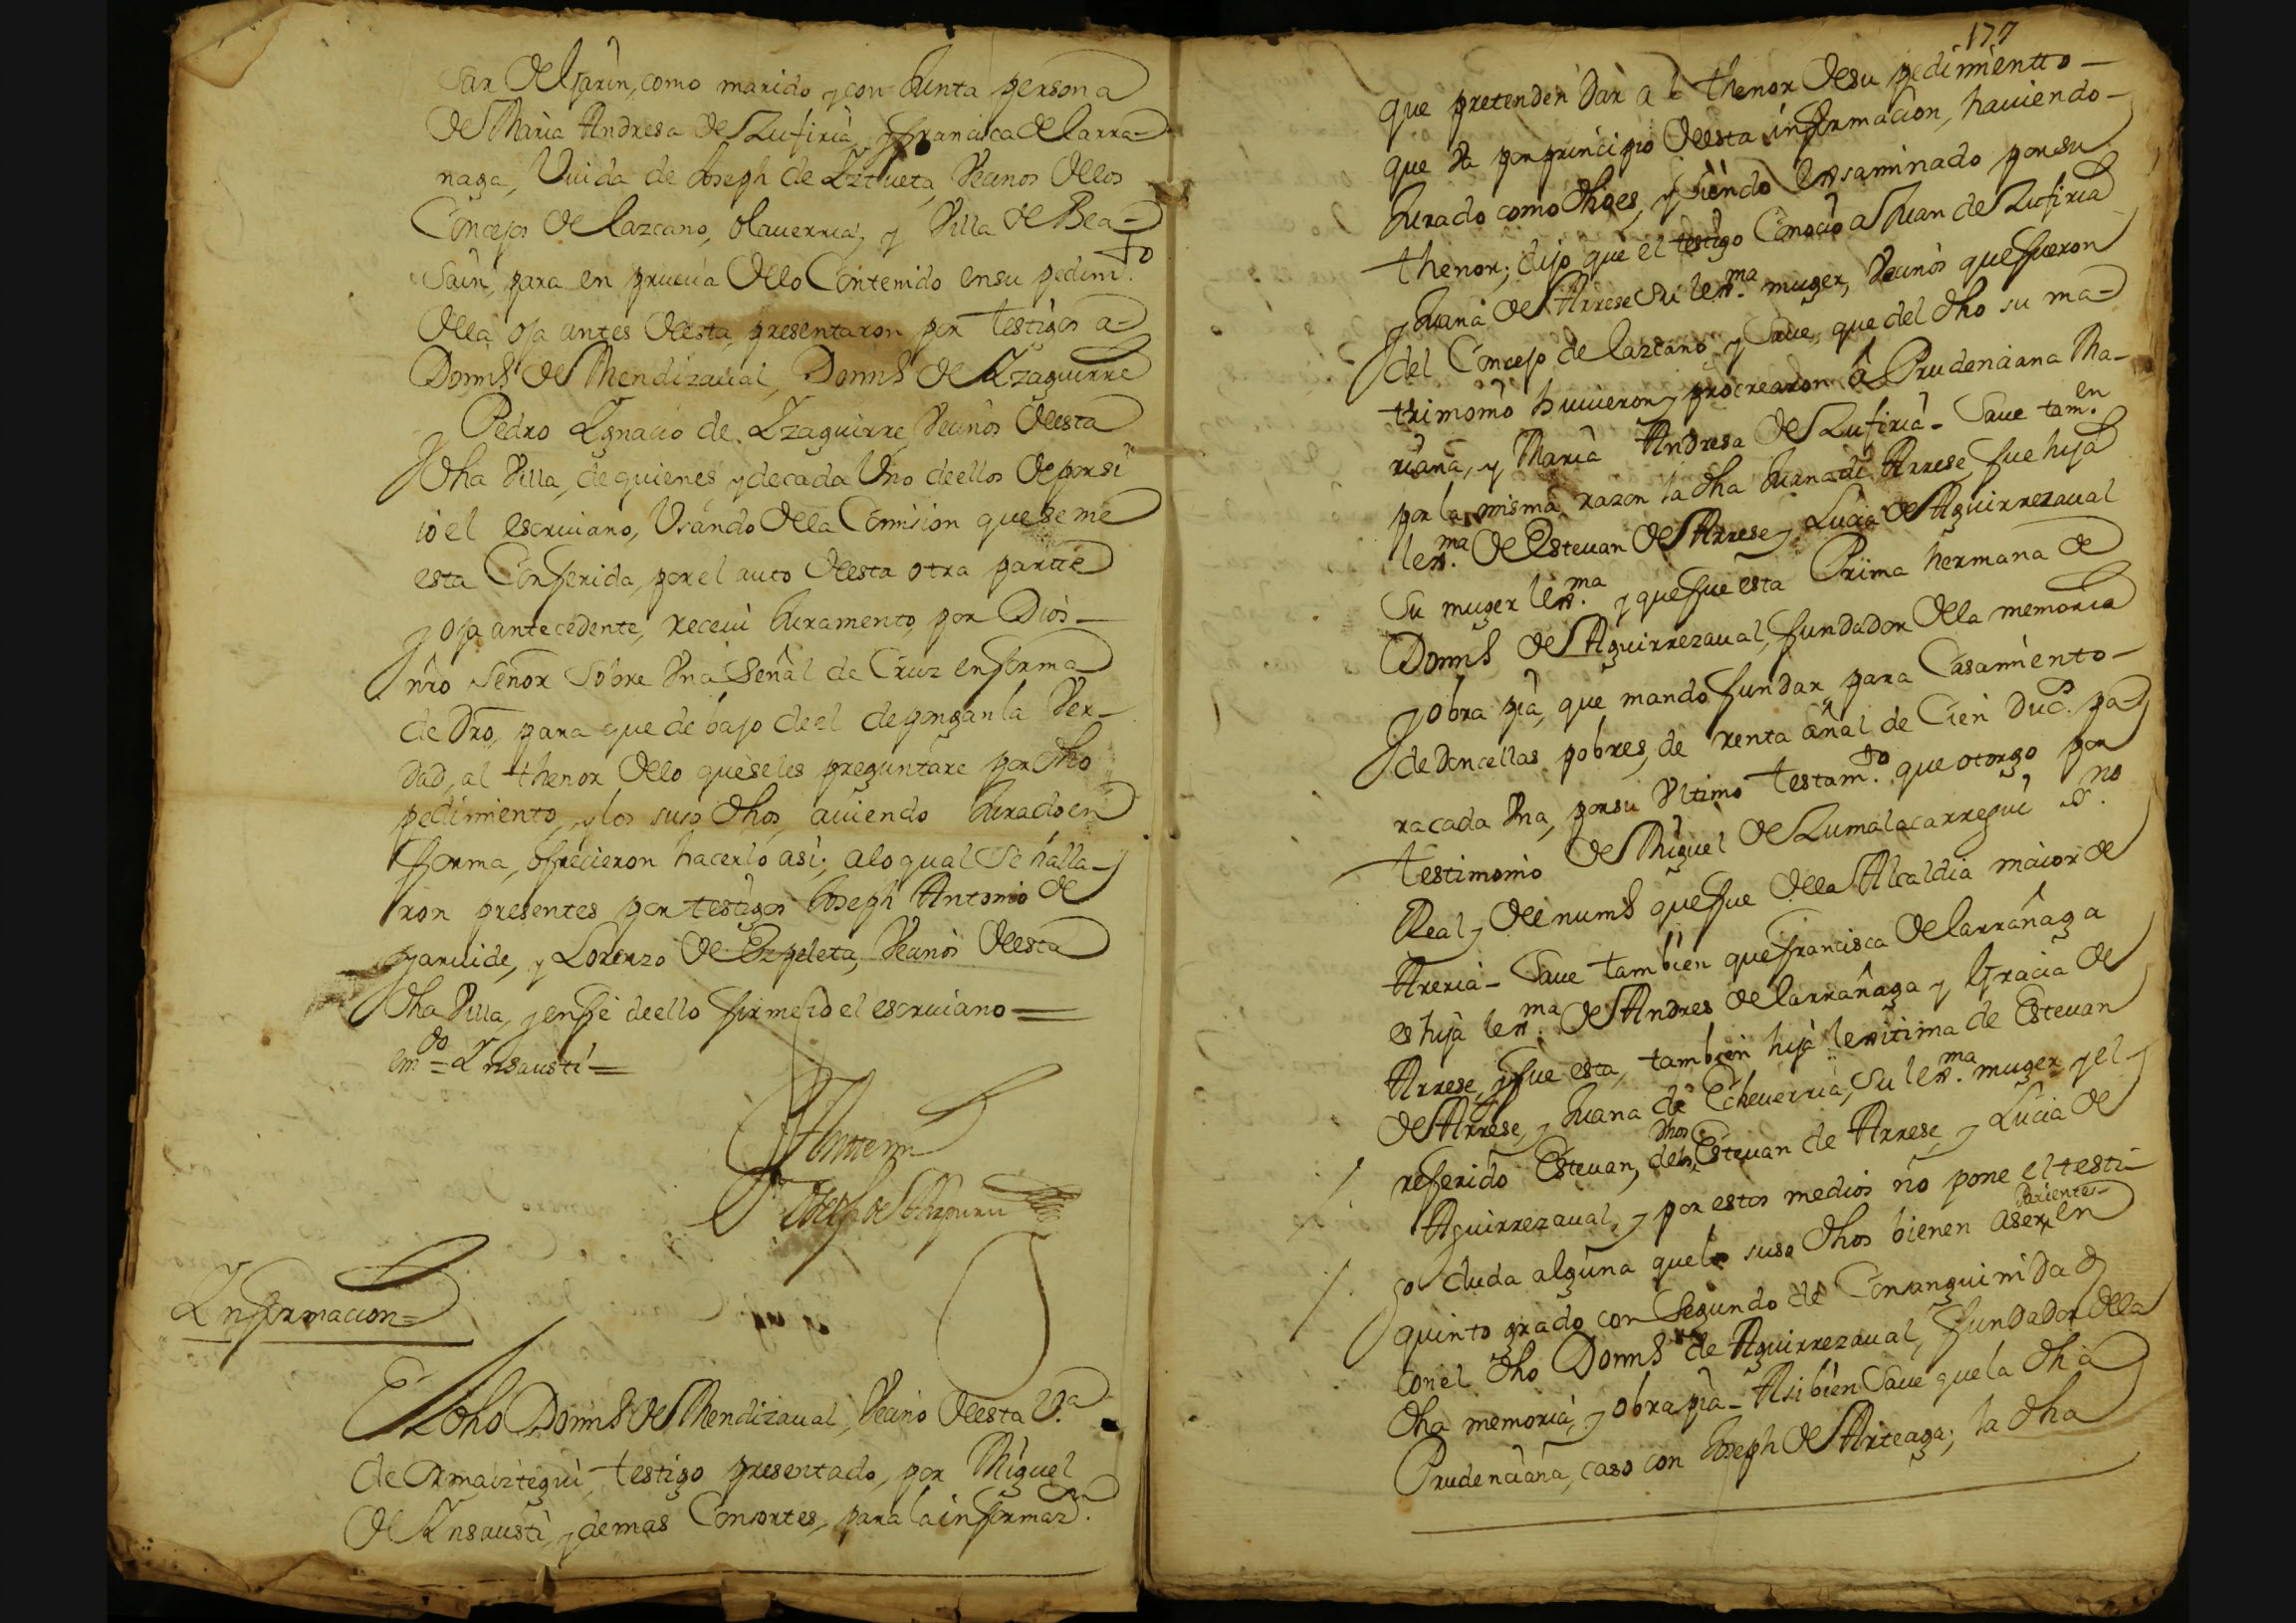 sar de Garin, como marido, y conjunta persona
de Maria Andresa de Zufiria, y francisca de larra-
naga, Viuda de Joseph de Yztueta, Vecinos de los
Concejos de lazcano, olauerria, y Villa de Bea-
sain, para en prueua de lo Contenido en su pedim.to
de la oja antes de esta, presentaron por testigos a
Domin.s de Mendizaual, Domin.s de Yzaguirre
y Pedro Ygnacio de Yzaguirre, Vecinos de esta
dha Villa, de quienes, y de cada Uno de ellos de por si
io el escriuano, Usando de la Comision que se me
esta Conferida, por el auto de esta otra parte
y oja antecedente, receui Juramento, por Dios
nro Señor sobre Una Señal de Cruz en forma
de dro, para que de bajo de el depongan la Ver-
dad, al thenor de lo que se les preguntare por dho
pedimiento, y los suso dhos, auiendo Jurado en
forma, ofrecieron hacerlo asi; a lo qual se halla-
ron presentes por testigos Joseph Antonio de
garuide, y Lorenzo de Ezpeleta, Vecinos de esta
dha Villa, y en fe de ello firme io el escriuano =
em.do = Ynsausti =
Ante mi
Joseph de
Ynformacion =
El dho Domin.s de Mendizaual, Vecino de esta V.a
de Ormaiztegui, testigo presentado, por Miguel
de Ynsausti, y demas Consortes, para la informaz.
177
que pretenden dar a el thenor de su pedimientto
que Va por principio de esta informacion, hauiendo
Jurado como dho es, y siendo exsaminado por su
thenor; dijo que el testigo Conocio a Juan de Zufiria
y Juana de Arrese su lex.ma muger, Vecinos que fueron
del Concejo de lazcano, y Saue, que del dho su ma-
trimonio huuieron, y procrearon â Prudenciana Ma-
riana, y Maria Andresa de Zufiria - Saue tam.en
por la misma razon la dha Juana de Arrese, fue hija
lex.ma de Estevan de Arrese, y Lucia de Aguirrezaual
Su muger lex.ma y que fue esta Prima hermana de
Domin.s de Aguirrezaual, fundador de la memoria
y obra pia, que mando fundar, para Casamiento
de doncellas pobres, de renta añal de Cien duc.s pa-
ra cada Una, por su Ultimo testam.to que otorgo por
testimonio de Miguel de Zumalacarregui s.no
Real, y de el num.o que fue de la Alcaldia maior de
Areria - Saue tambien que francisca de larrañaga
es hija lex.ma de Andres de larrañaga y Gracia de
Arrese, y fue esta, tambien hija lexitima de Estevan
de Arrese, y Juana de Echeuerria, Su lex.ma muger, y el
referido Estevan, de los dhos Estevan de Arrese, y Lucia de
Aguirrezaual, y por estos medios no pone el testi-
go duda alguna que los suso dhos bienen a ser parientes en
quinto grado con Segundo de Consanguinidad
con el dho Domin.s de Aguirrezaual, fundador de la
dha memoria, y obra pia - Asi bien Saue que la dha
Prudenciana, caso con Joseph de Arteaga; la dha